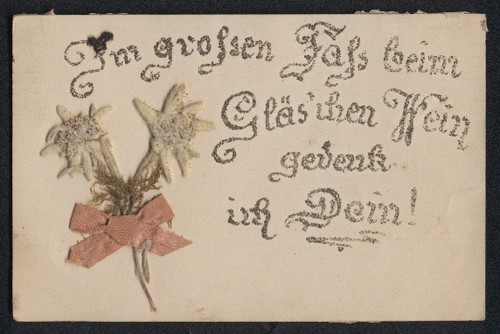 Im grossen Fass beim
Gläs'chen Wein
gedenk
ich Dein!